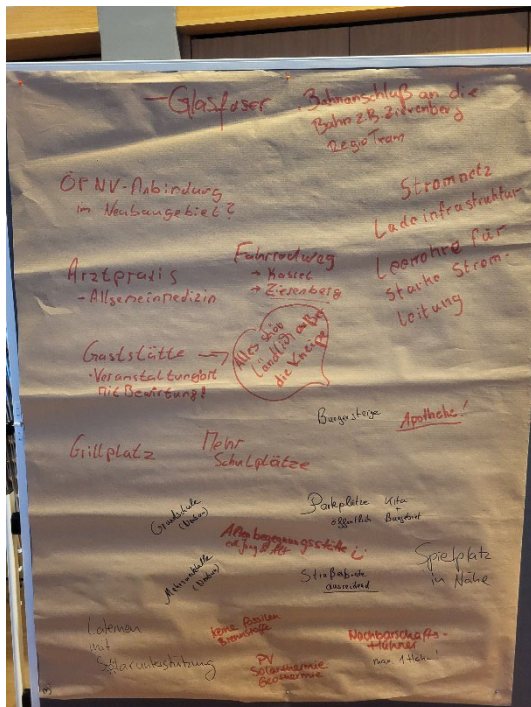 - Glasfaser
Bahnanschluß an die
Bahn z.B. Zierenberg
Regio Tram
ÖPNV-Anbindung
im Neubaugebiet?
Stromnetz
Ladeinfrastruktur
Leerrohre für
starke Strom-
leitung
Arztpraxis
- Allgemeinmedizin
Fahrradweg
→ Kassel
→ Zierenberg
Gaststätte →
- Veranstaltungsort
mit Bewirtung!
Alles schön
ländlich außer
die Kneipe
Bürgersteige
Apotheke!
Grillplatz
Mehr
Schulplätze
Grundschule
(Neubau)
Parkplätze
öffentlich
Kita
+
Baugebiet
Altenbegegnungsstätte
Jung & Alt
Mehrzweckhalle
(Neubau)
Straßenbreite
ausreichend
Spielplatz
in Nähe
Laternen
mit
Solarunterstützung
keine fossilen
Brennstoffe
PV
Solarthermie
Geothermie
Nachbarschafts-
Hühner
max. 1 Hahn!